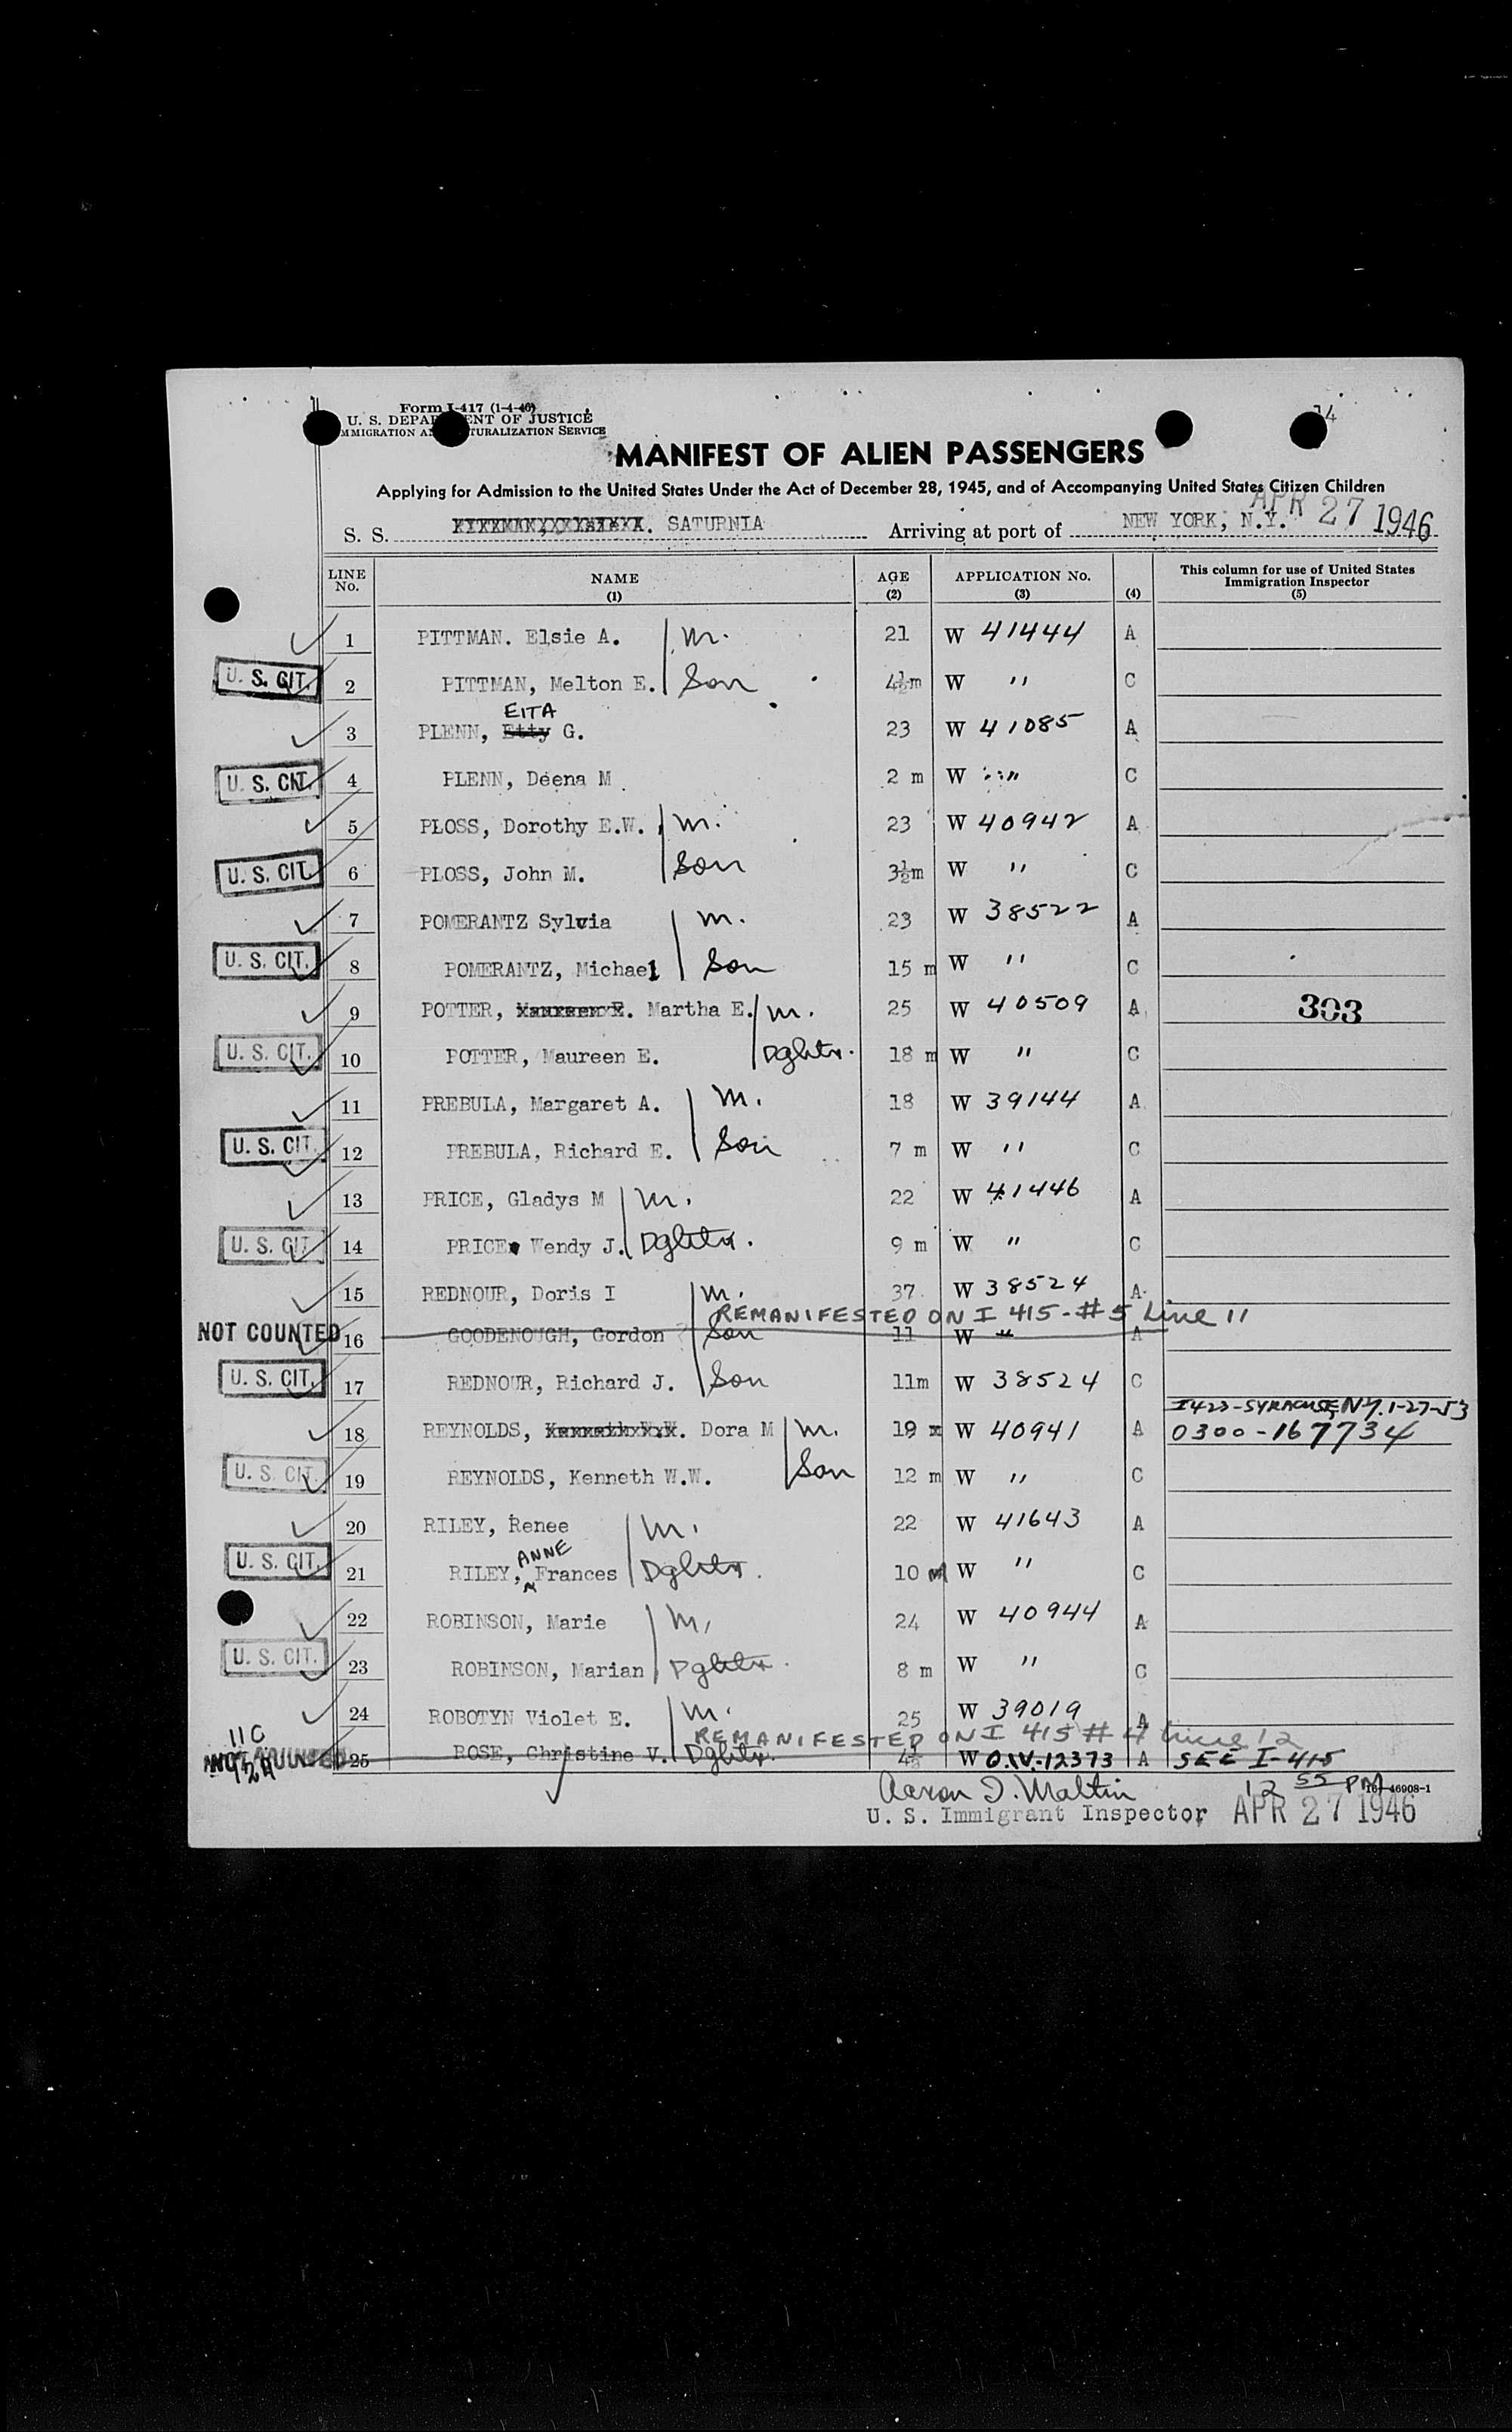 Form I-417 (1-4-46)
U. S. DEPARTMENT OF JUSTICE
IMMIGRATION AND NATURALIZATION SERVICE
14
MANIFEST OF ALIEN PASSENGERS
Applying for Admission to the United States Under the Act of December 28, 1945, and of Accompanying United States Citizen Children
S. S. SATURNIA Arriving at port of NEW YORK, N.Y. APR 27 1946
LINE No. NAME (1) AGE (2) APPLICATION No. (3) (4) This column for use of United States Immigration Inspector (5)
1 PITTMAN. Elsie A. m. 21 W 41444 A
U. S. CIT. 2 PITTMAN, Melton E. Son 4½m W " C
EITA
3 PLENN, Etty G. 23 W 41085 A
U. S. CIT. 4 PLENN, Deena M 2 m W " C
5 PLOSS, Dorothy E.W. m. 23 W 40942 A
U. S. CIT. 6 PLOSS, John M. Son 3½m W " C
7 POMERANTZ Sylvia m. 23 W 38522 A
U. S. CIT. 8 POMERANTZ, Michael Son 15 m W " C
9 POTTER, Martha E. m. 25 W 40509 A 303
U. S. CIT. 10 POTTER, Maureen E. Dghtr. 18 m W " C
11 PREBULA, Margaret A. m. 18 W 39144 A
U. S. CIT. 12 PREBULA, Richard E. Son 7 m W " C
13 PRICE, Gladys M m. 22 W 41446 A
U. S. CIT. 14 PRICE, Wendy J. Dghtr. 9 m W " C
15 REDNOUR, Doris I m. 37 W 38524 A
REMANIFESTED ON I 415-#5 Line 11
NOT COUNTED 16 GOODENOUGH, Gordon Son 11 W " A
U. S. CIT. 17 REDNOUR, Richard J. Son 11m W 38524 C
I423-SYRACUSE, N.Y. 1-27-53
18 REYNOLDS, Dora M m. 19 W 40941 A 0300-167734
U. S. CIT. 19 REYNOLDS, Kenneth W.W. Son 12 m W " C
20 RILEY, Renee m. 22 W 41643 A
ANNE
U. S. CIT. 21 RILEY, Frances Dghtr. 10 M W " C
22 ROBINSON, Marie m. 24 W 40944 A
U. S. CIT. 23 ROBINSON, Marian Dghtr. 8 m W " C
24 ROBOTYN Violet E. m. 25 W 39019 A
11C REMANIFESTED ON I 415 # 4 Line 12
NOT COUNTED 25 ROSE, Christine V. Dghtr. 4½ W O.IV-12373 A SEE I-415
Aaron I. Maltin 12 55 PM 16-46908-1
U. S. Immigrant Inspector APR 27 1946